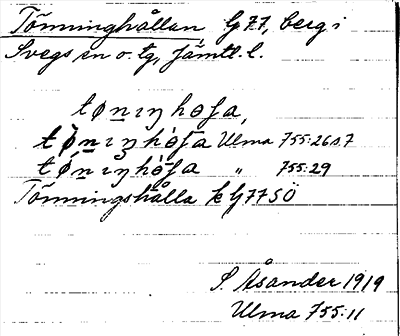 Tönninghållan G77, berg i
Svegs sn o. tg, Jämtl. l.
tønıŋhoʃa,
tø̀nıŋhò̄ʃa Ulma 755:26 s. 7
tǿnıŋhòʃa " 755:29
Tönningshålla k G77SÖ
S. Åsander 1919
Ulma 755:11